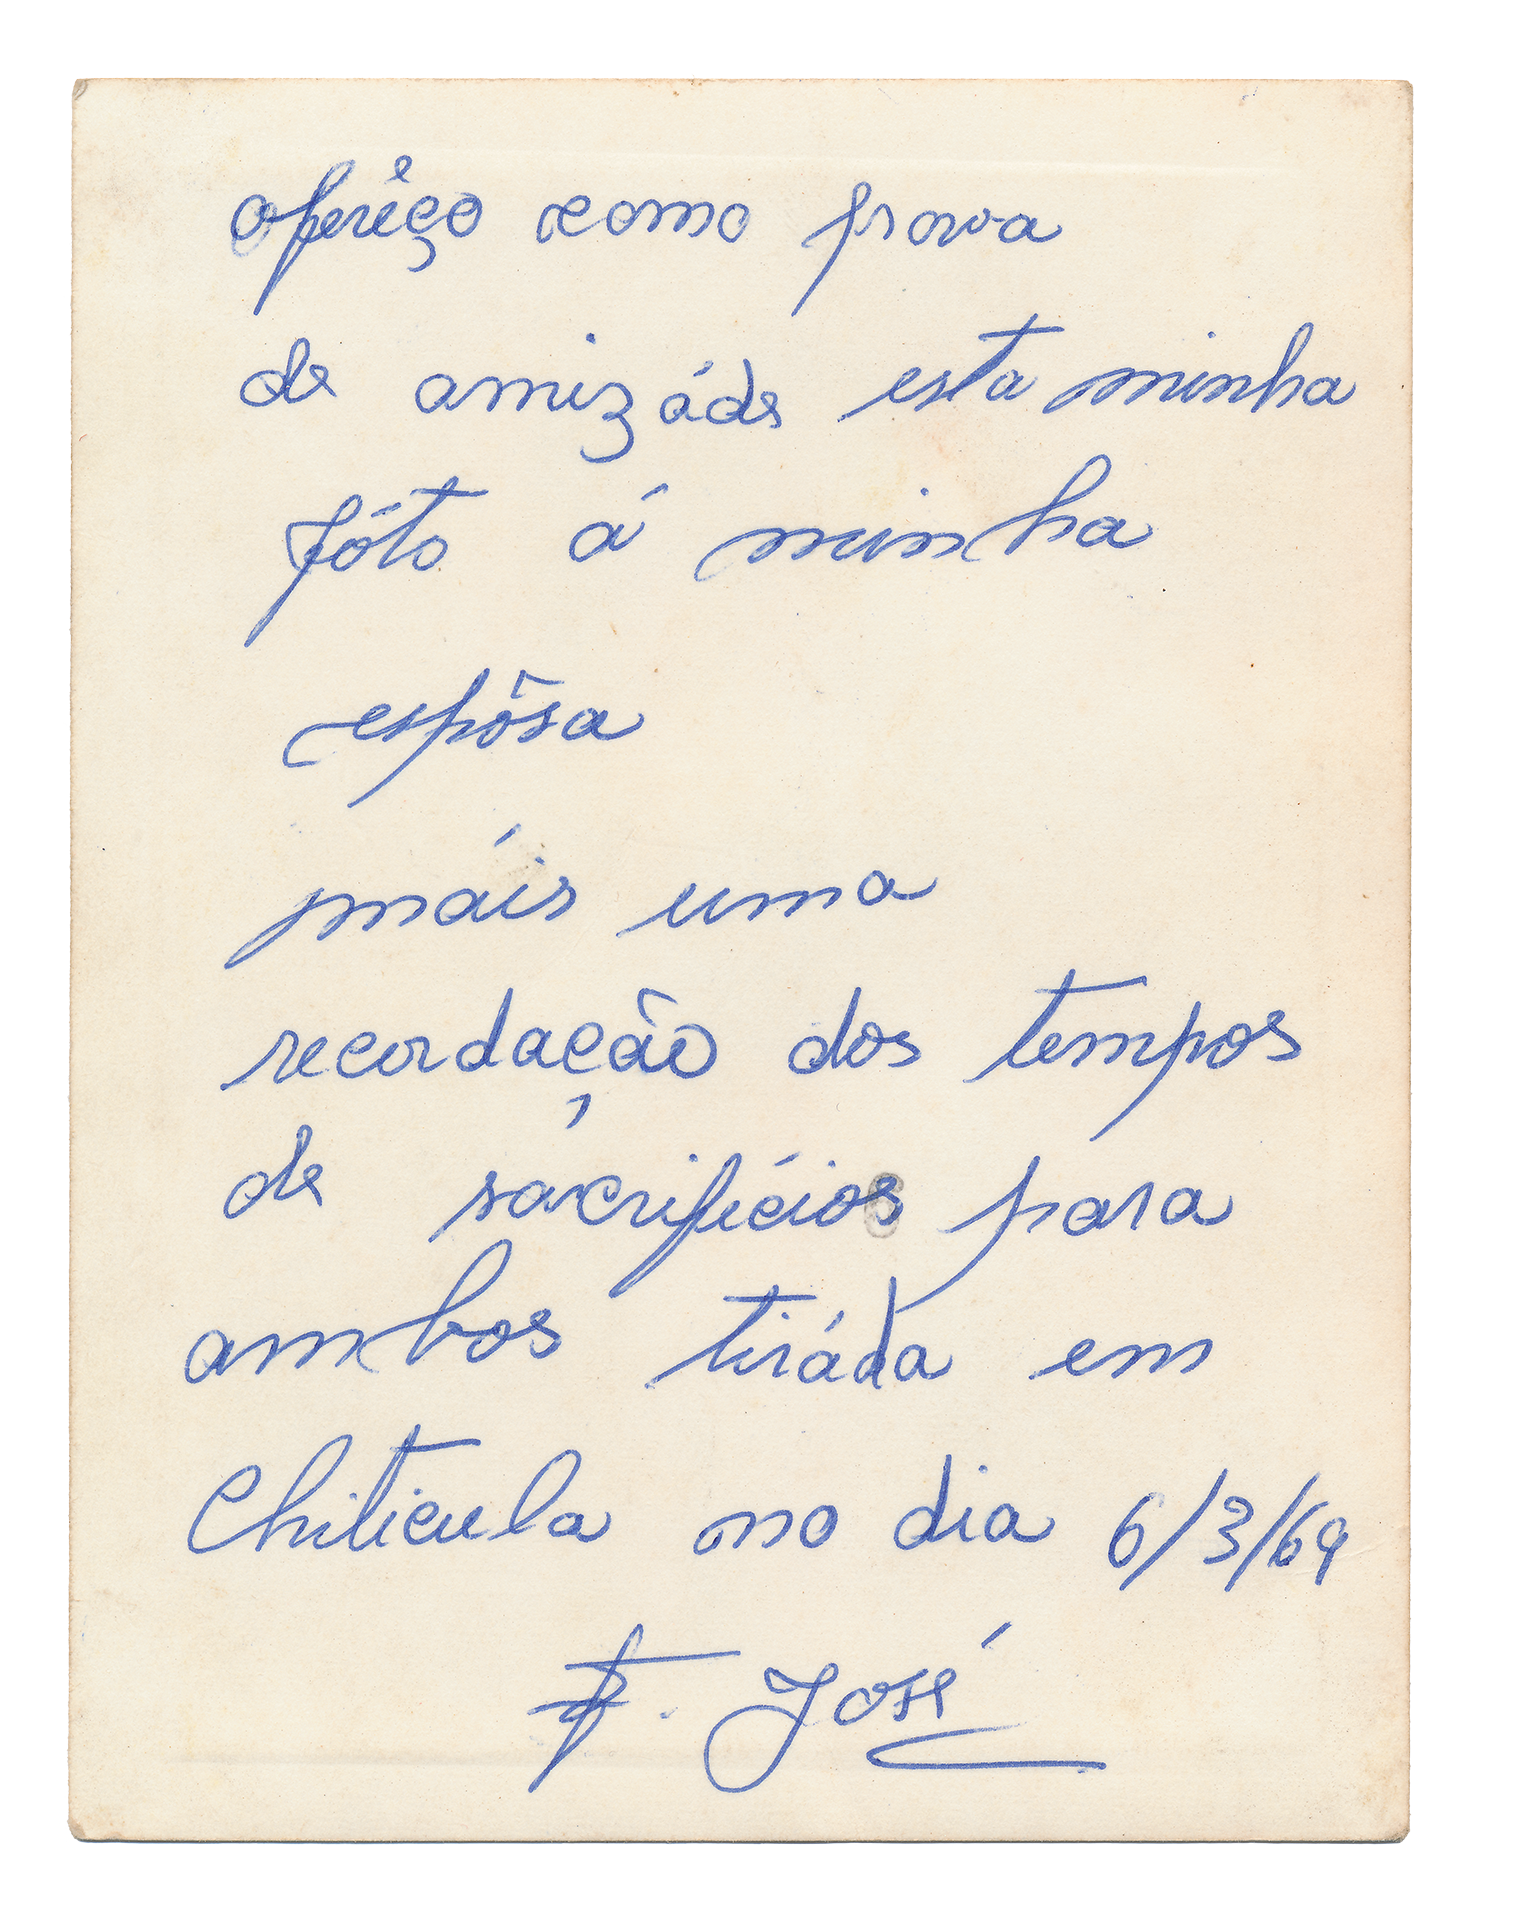 oferêço como prova
de amizáde esta minha
fóto á minha
espôsa
máis uma
recordação dos tempos
de sacrifícios para
ambos tiráda em
Chiticula no dia 6/3/69
F. José